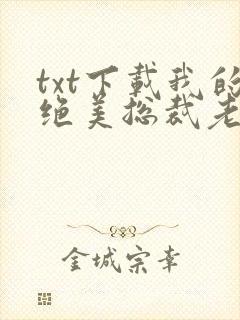 txt下载我的
绝美总裁老
金城宗幸